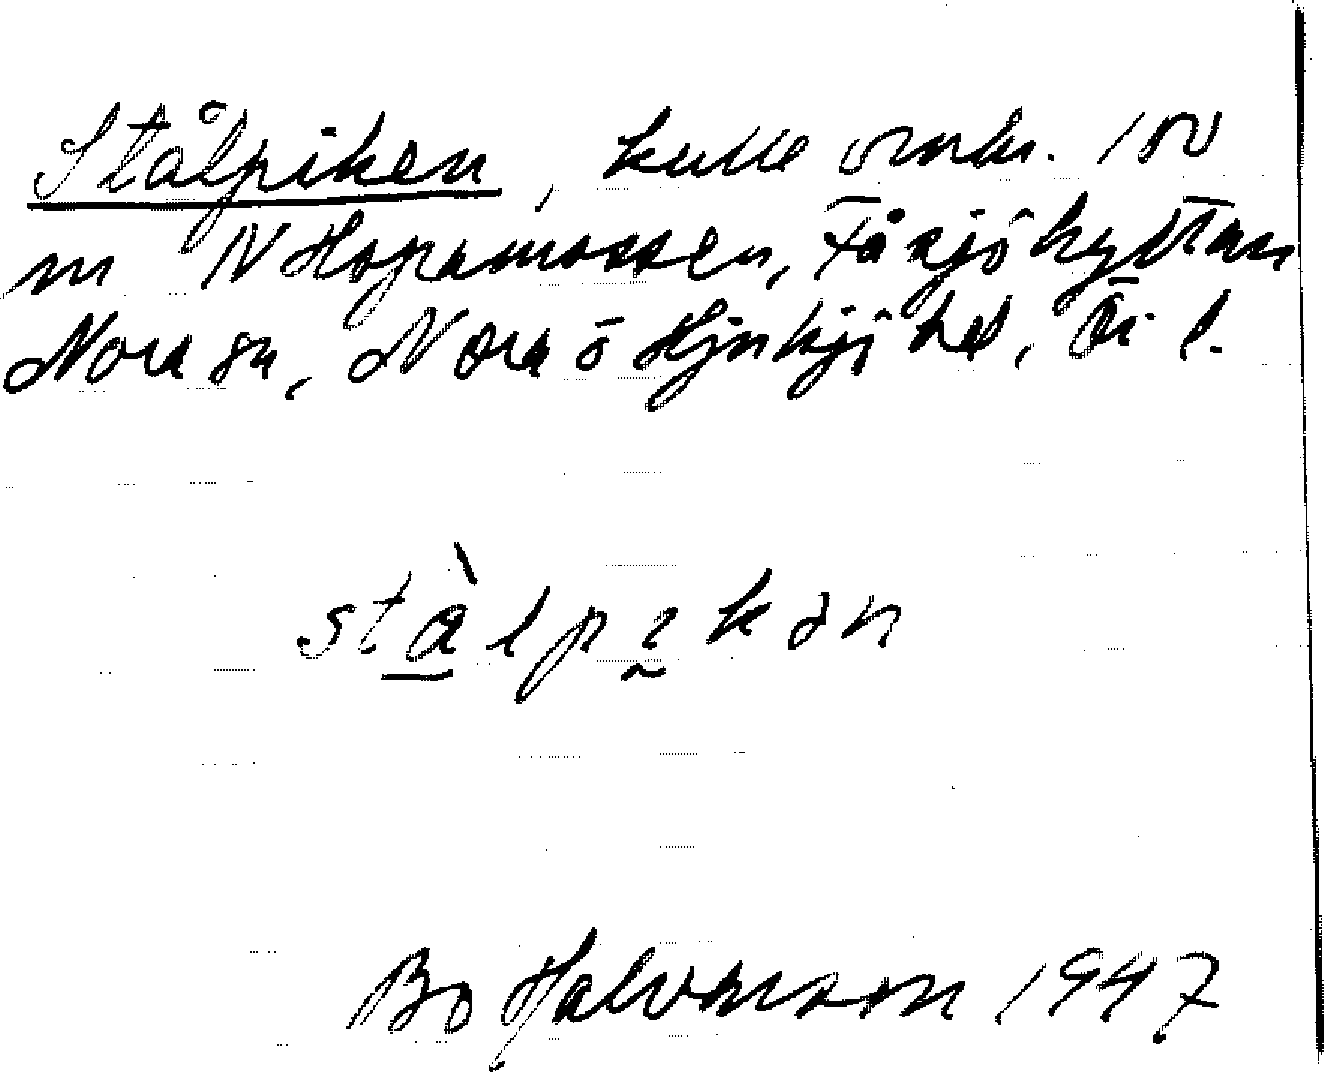 Stålpiken, kulle omkr. 150
m N Hopamossen, Fåsjöhyttan
Nora sn, Nora o Hjnksjö hd, Ör l.
stàlpikən
Bo Halvarsson 1947